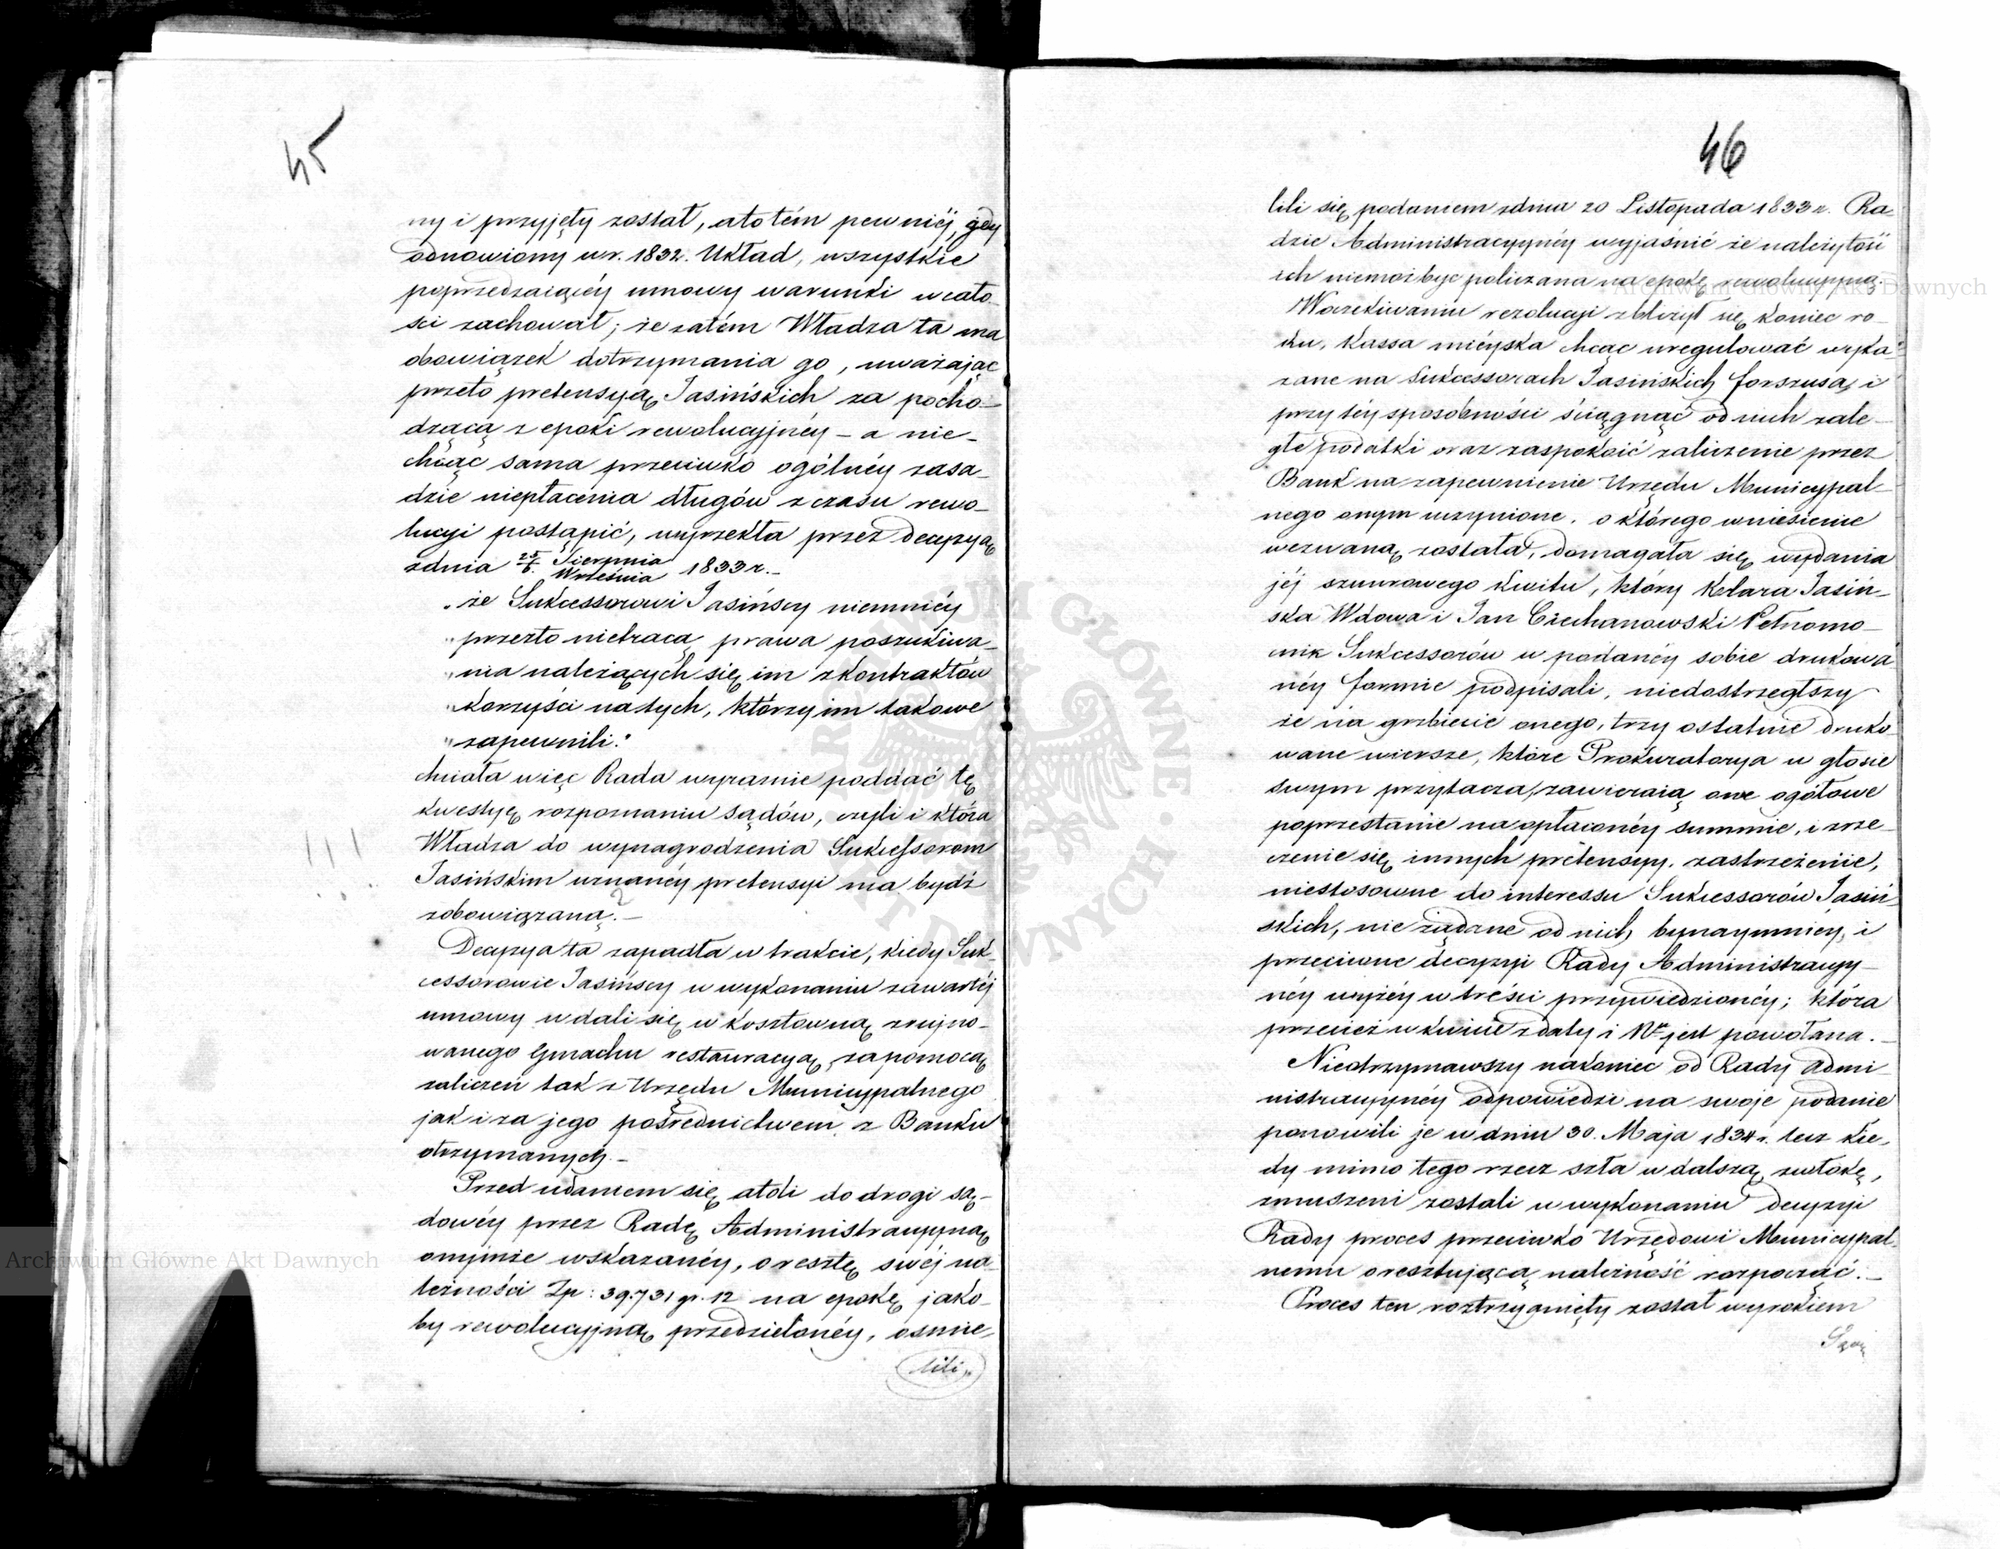 45
ny i przyjęty został, a to tém pewniéj, gdy
odnowiony w r. 1832. Układ, wszystkie
poprzedzaiącéy umowy warunki w cało-
ści zachował; że zatém Władza ta ma
obowiązek dotrzymania go, uważając
przeto pretensyą Jasińskich za pocho-
dzącą z epoki rewolucyjnéy – a nie-
chcąc sama przeciwko ogólnéy zasa-
dzie niepłacenia długów z czasu rewo-
lucyi postąpić, wyrzekła przez decyzyą
zdnia 25/6. Sierpnia/Września 1833 r. –
„że Sukcessorowi Jasińscy niemniéy
„przezto nietracą prawa poszukiwa-
„nia należących się im z kontraktów
„korzyści na tych, którzy im takowe
„zapewnili."
chciała więc Rada wyraźnie poddać tę
kwestyę rozpoznaniu sądów, czyli i która
Władza do wynagrodzenia Sukcessorom
Jasińskim uznanéy pretensyi ma bydź
zobowiązaną? –
Decyzya ta zapadła w trakcie, kiedy Suk-
cessorowie Jasińscy w wykonaniu zawartéj
umowy wdali się w kosztowną zrujno-
wanego Gmachu restauracyą, zapomocą
zaliczeń tak z Urzędu Municypalnego
jak i za jego pośrednictwem z Banku
otrzymanych. –
Przed udaniem się atoli do drogi są-
dowéy przez Radę Administracyyną
omylnie wskazanéy, o resztę swéj na-
leżności Zp: 39,731 gr. 12 na epokę jako-
by rewolucyjną przedzieloney, ośmie-
lili
46
lili się podaniem zdnia 20 Listopada 1833 r. Ra-
dzie Administracyynéy wyjaśnić że należytość
ich niemoże być policzana na epokę rewolucyyną.
W oczekiwaniu rezolucyi zbliżył się koniec ro-
ku, Kassa mieyska chcąc uregulować wyka-
zane na Sukcessorach Jasińskich forszusa, i
przy téy sposobności ściągnąć od nich zale-
głe podatki oraz zaspokoić zaliczenie przez
Bank na zapewnienie Urzędu Municypal-
nego onym uczynione, o którego wniesienie
wezwaną została, domagała się wydania
jéj sznurowego kwitu, który Klara Jasiń-
ska Wdowa i Jan Ciechanowski Pełnomo-
cnik Sukcessorów w podanéy sobie drukowa-
néy formie podpisali, niedostrzegłszy
że na grzbiecie onego, trzy ostatnie druko-
wane wiersze, które Prokuratorya w głosie
swym przytacza, zawieraią one ogółowe
poprzestanie na opłaconéy summie, i zrze-
czenie się innych pretensyy, zastrzeżenie,
niestosowne do interessu Sukcessorów Jasiń-
skich, nie żądane od nich bynaymniéy, i
przeciwne decyzyi Rady Administracyy-
néy wyżéy w treści przywiedzionéy; która
przecież w kwicie z daty i Nr jest powołana. –
Nieotrzymawszy nakoniec od Rady Admi-
nistracyynéy odpowiedzi na swoje podanie
ponowili je w dniu 30. Maja 1834 r. lecz kie-
dy mimo tego rzecz szła w dalszą zwłokę,
zmuszeni zostali w wykonaniu decyzyi
Rady proces przeciwko Urzędowi Municypal-
nemu o resztującą należność rozpocząć. –
Proces ten roztrzygnięty został wyrokiem